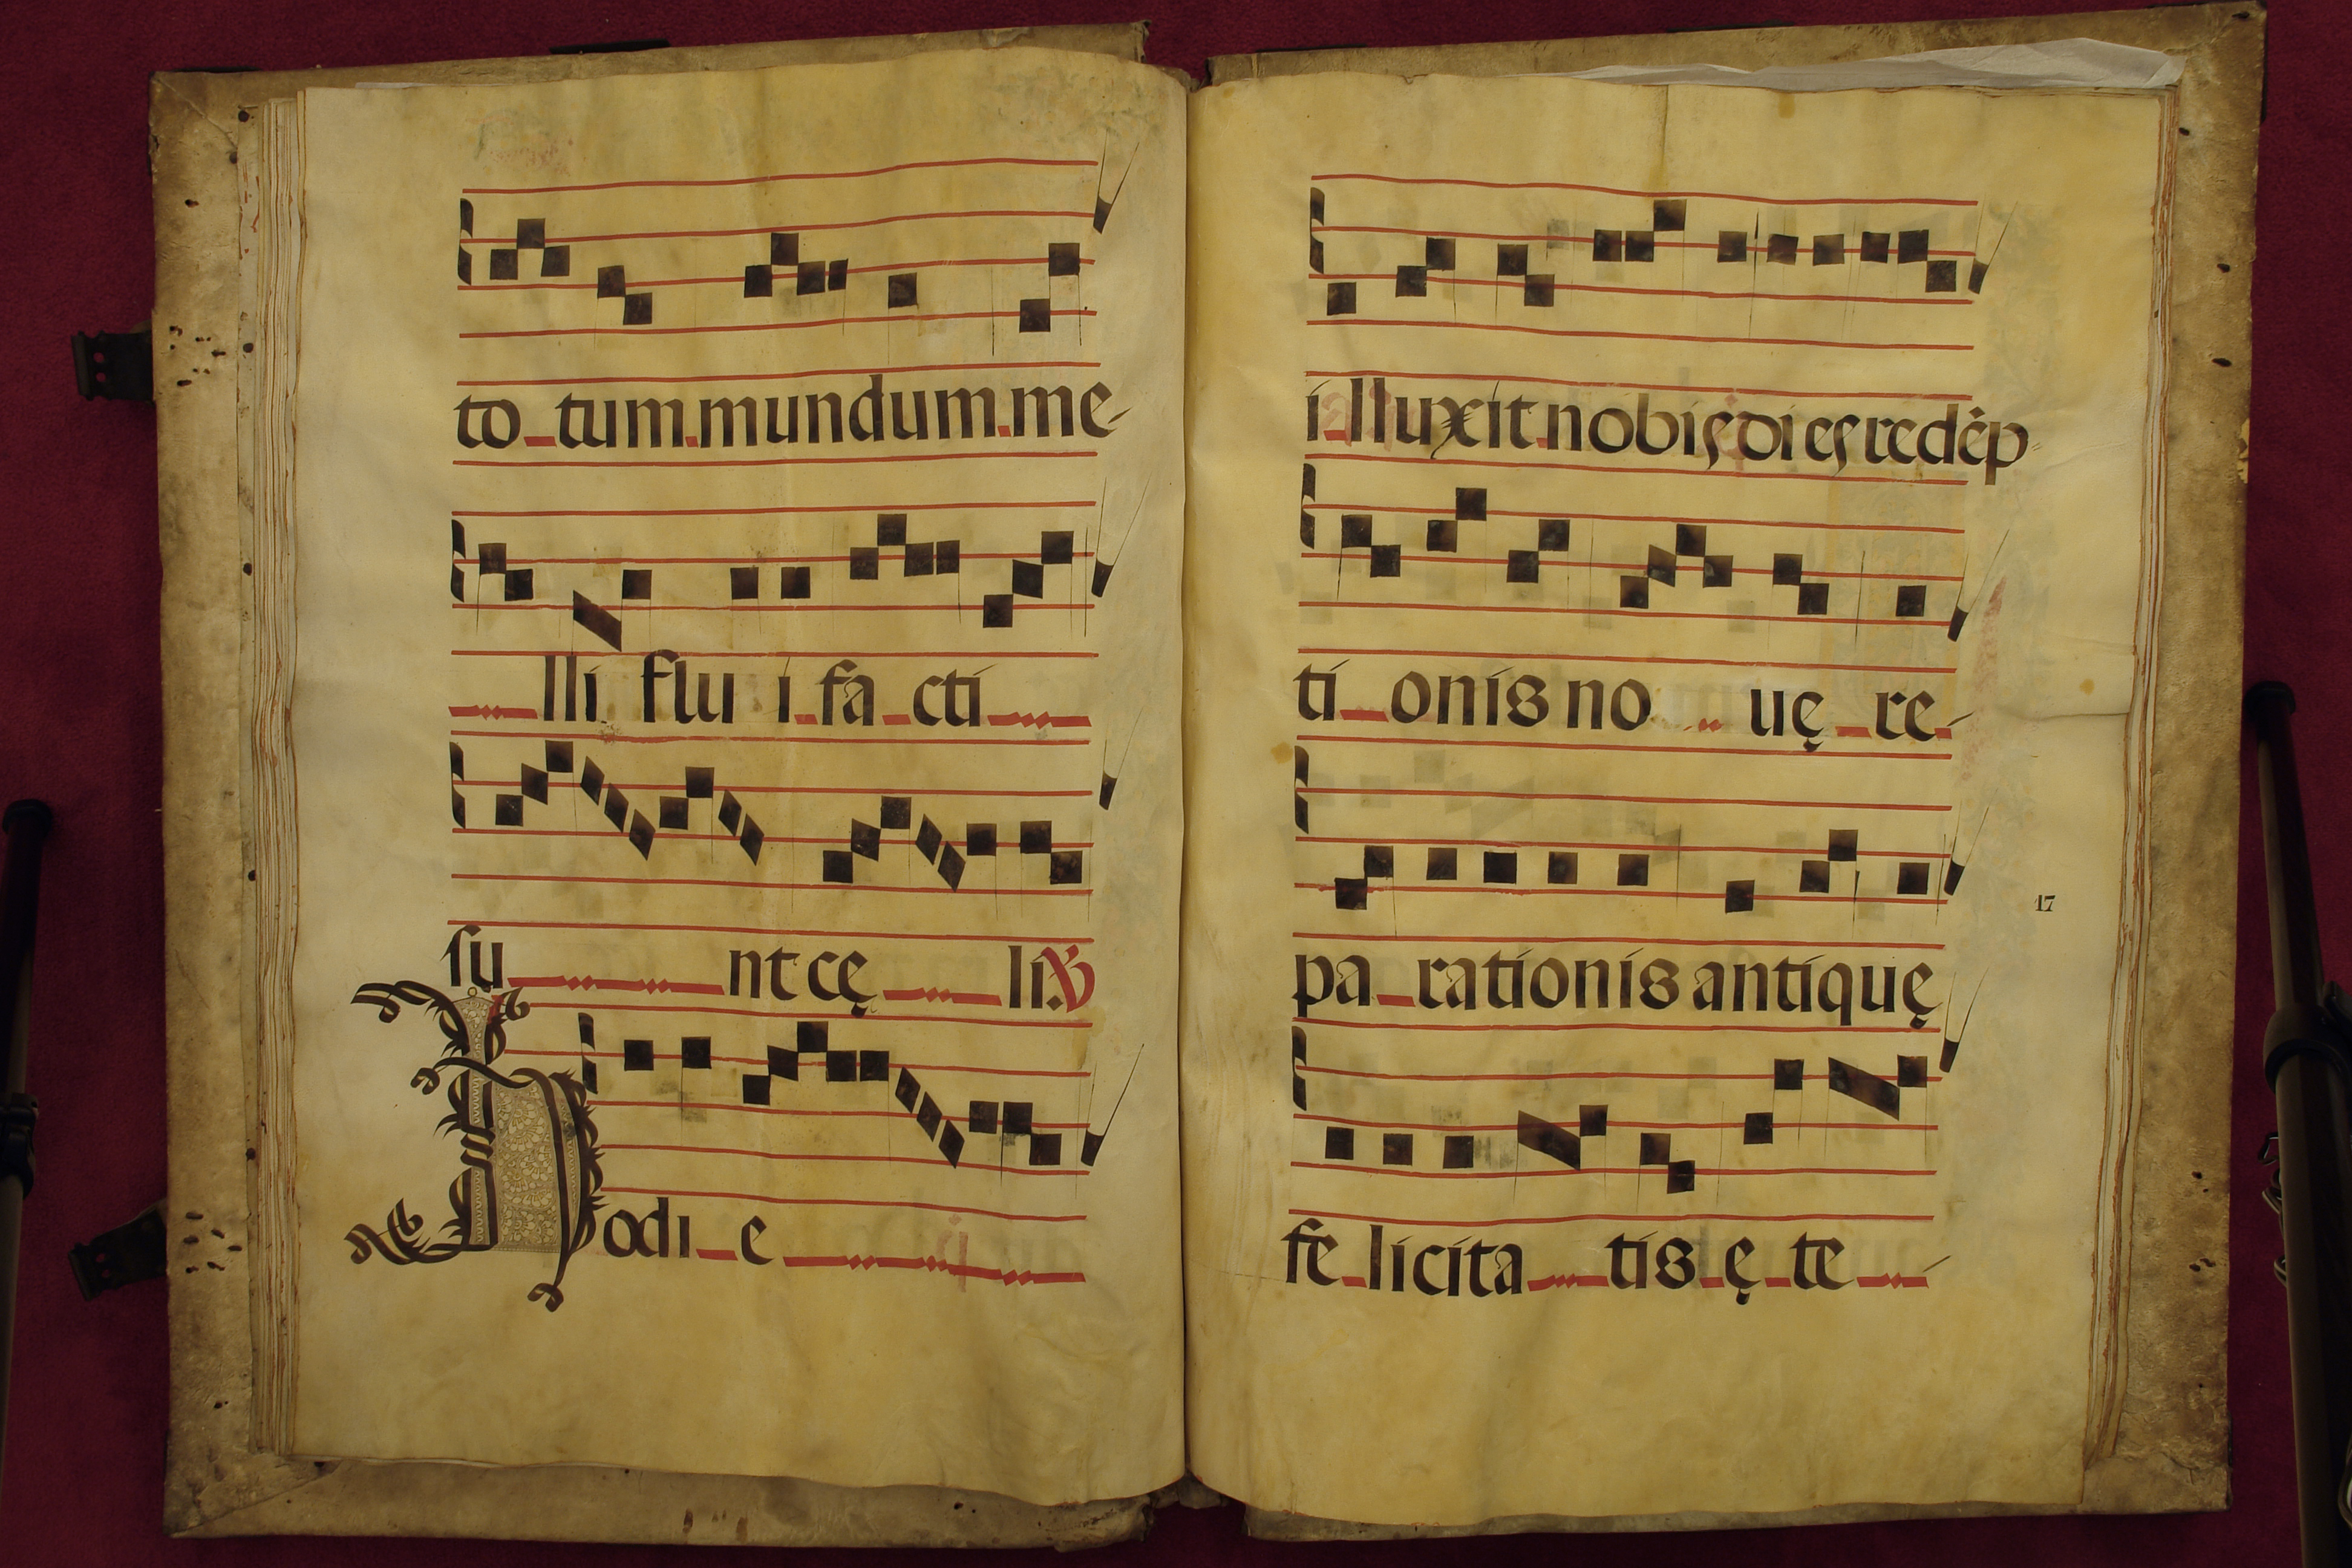 to tum mundum me-
lli flu i fa cti
su nt cę li ℣
Hodi e
illuxit nobis dies redēp-
ti onis no uę re-
pa rationis antiquę
17
fe licita tis ę te